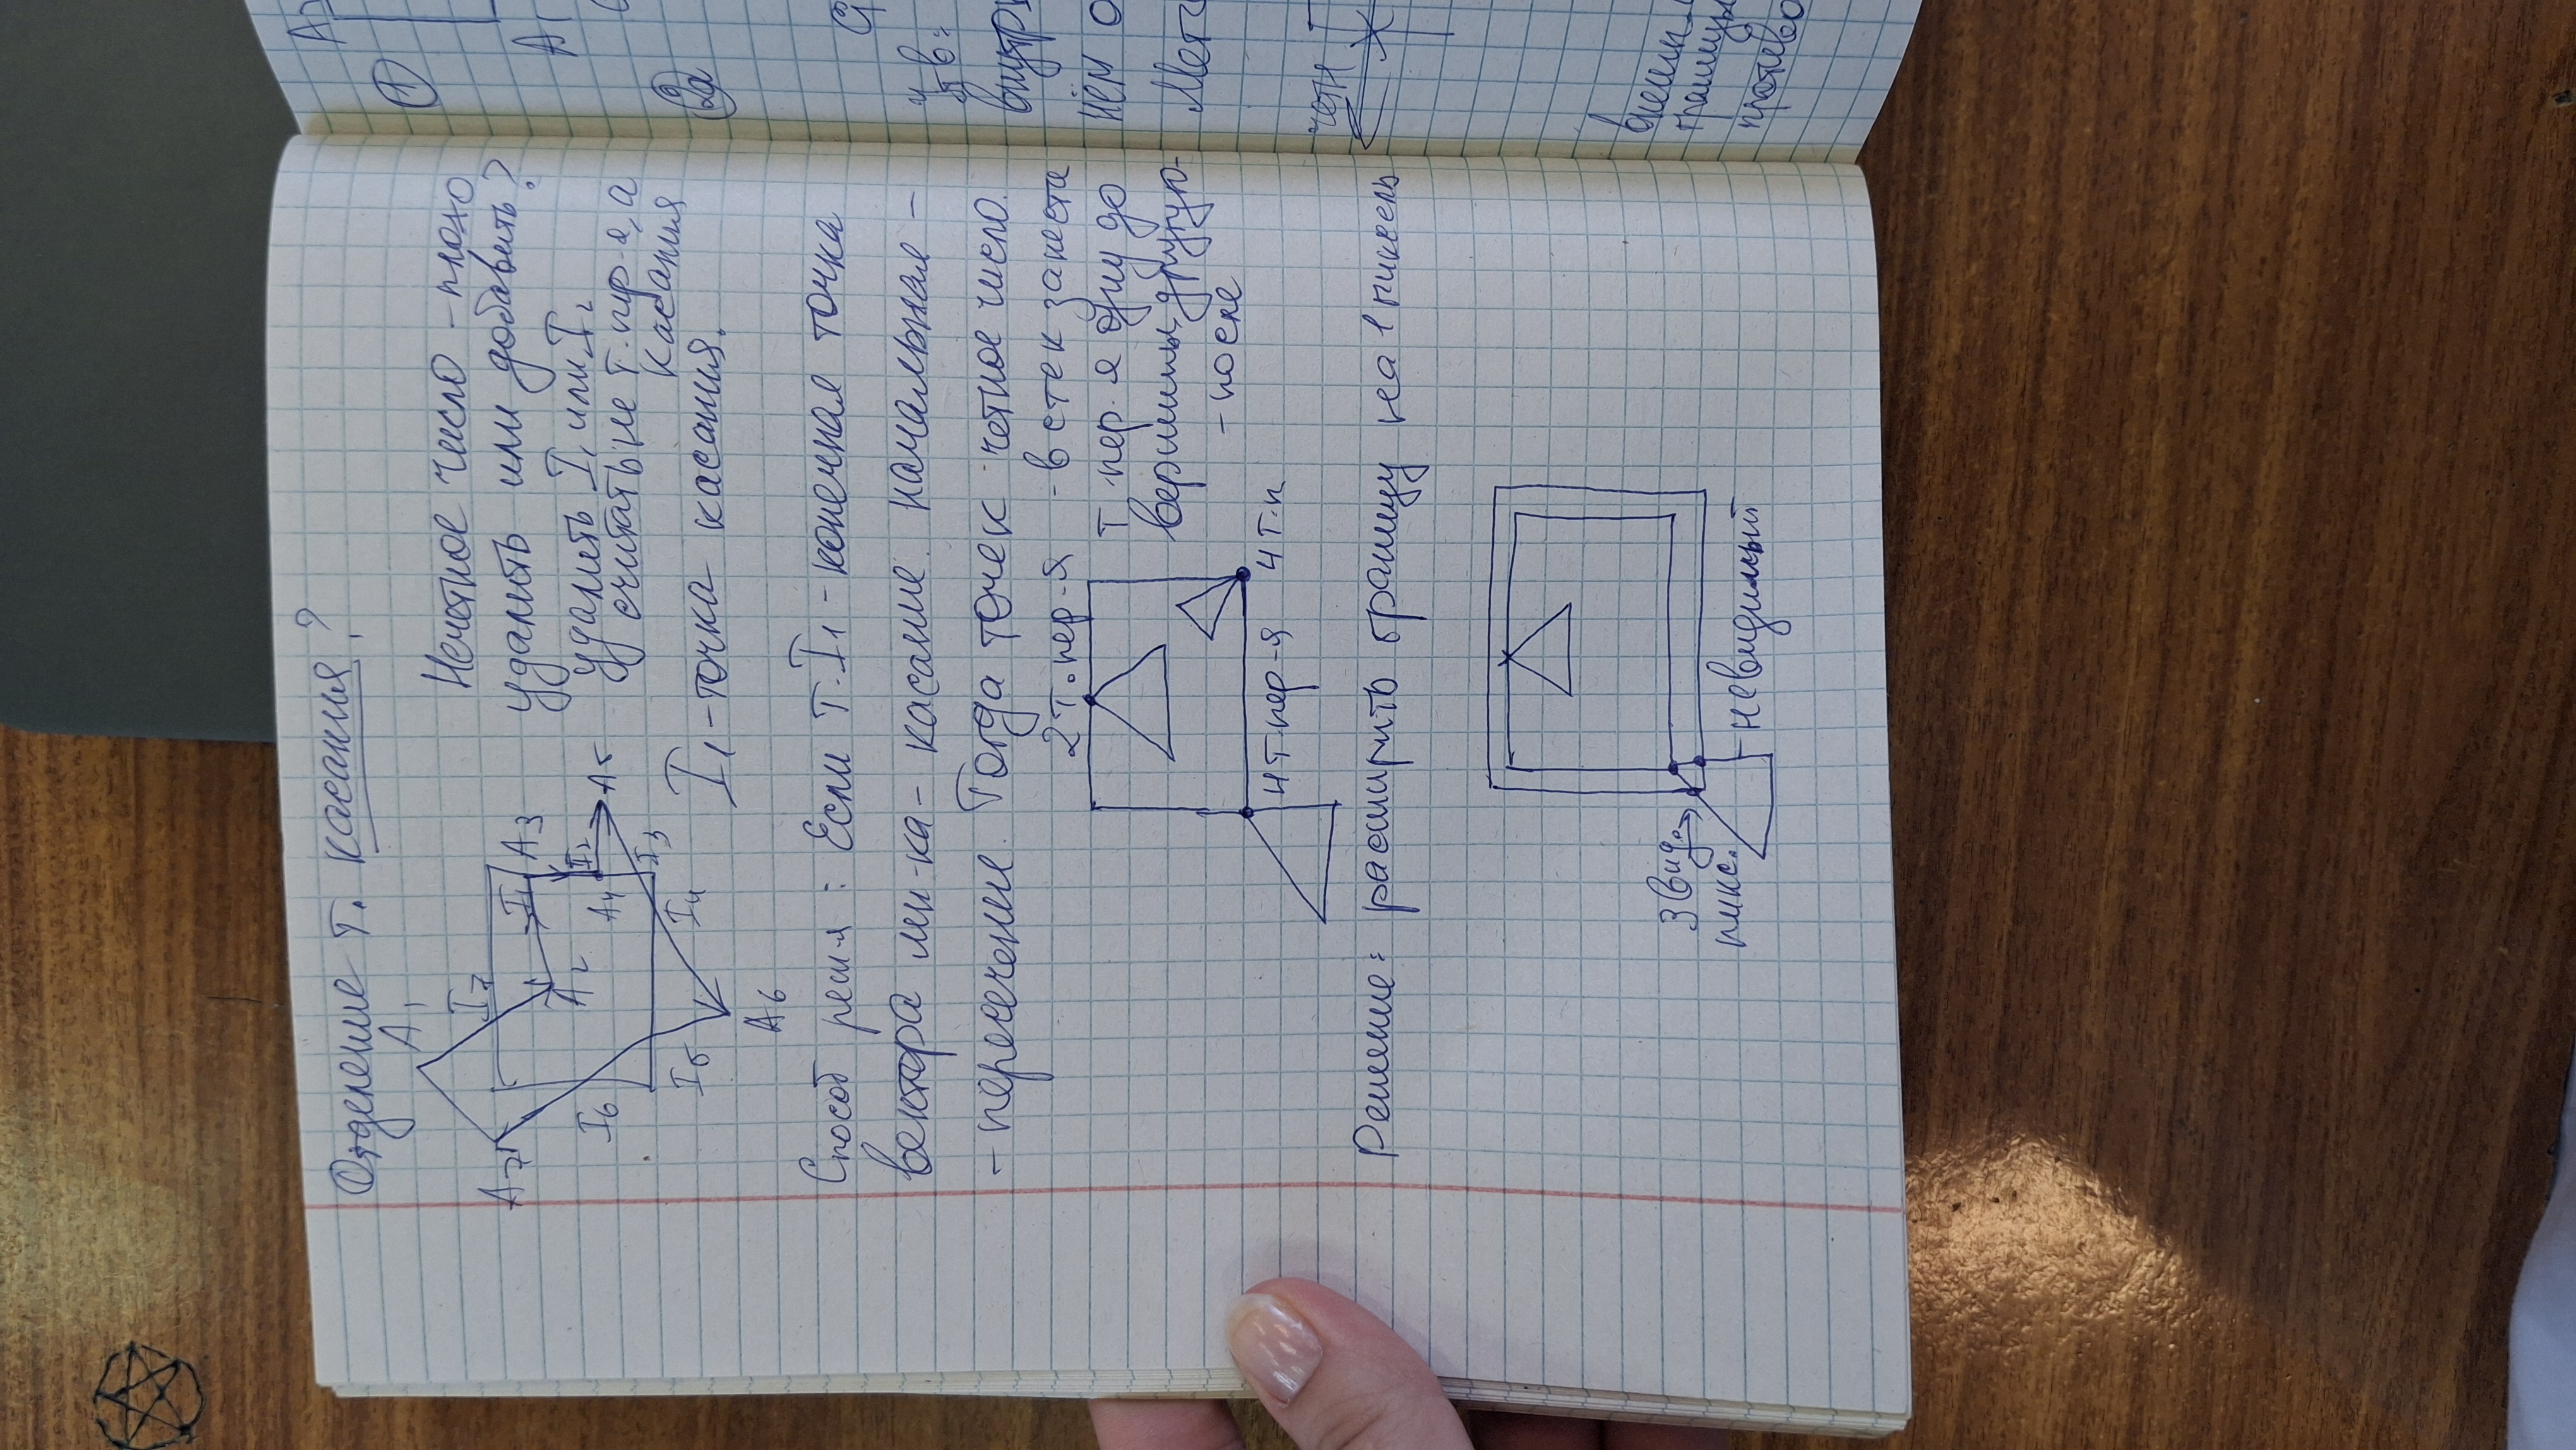 Отделение т. касания?
A₁
I₇
A₇
I₁ A₃
A₂
I₂
A₄ A₅
I₆
I₃
I₅
I₄
A₆
Нечетное число - плохо
удалить или добавить?
удалить I₁ или I₂
считать не т. пер-я, а
касания
I₁ - точка касания.
Способ реш-я: Если т. I₁ - конечная точка
вектора мн-ка - касание. начальная -
- пересечение. Тогда точек четное число.
2 т. пер-я - в стек занести
т. пер-я одну до
вершины, другую-
- после
4 т. пер-я 4 т.п
Решение: расширить границу на 1 пиксель
3 вид.
пикс.
невидимый
A₃
①
A₁
②a
Утв:
внутр
нём о
четн
внешн
границы
противо